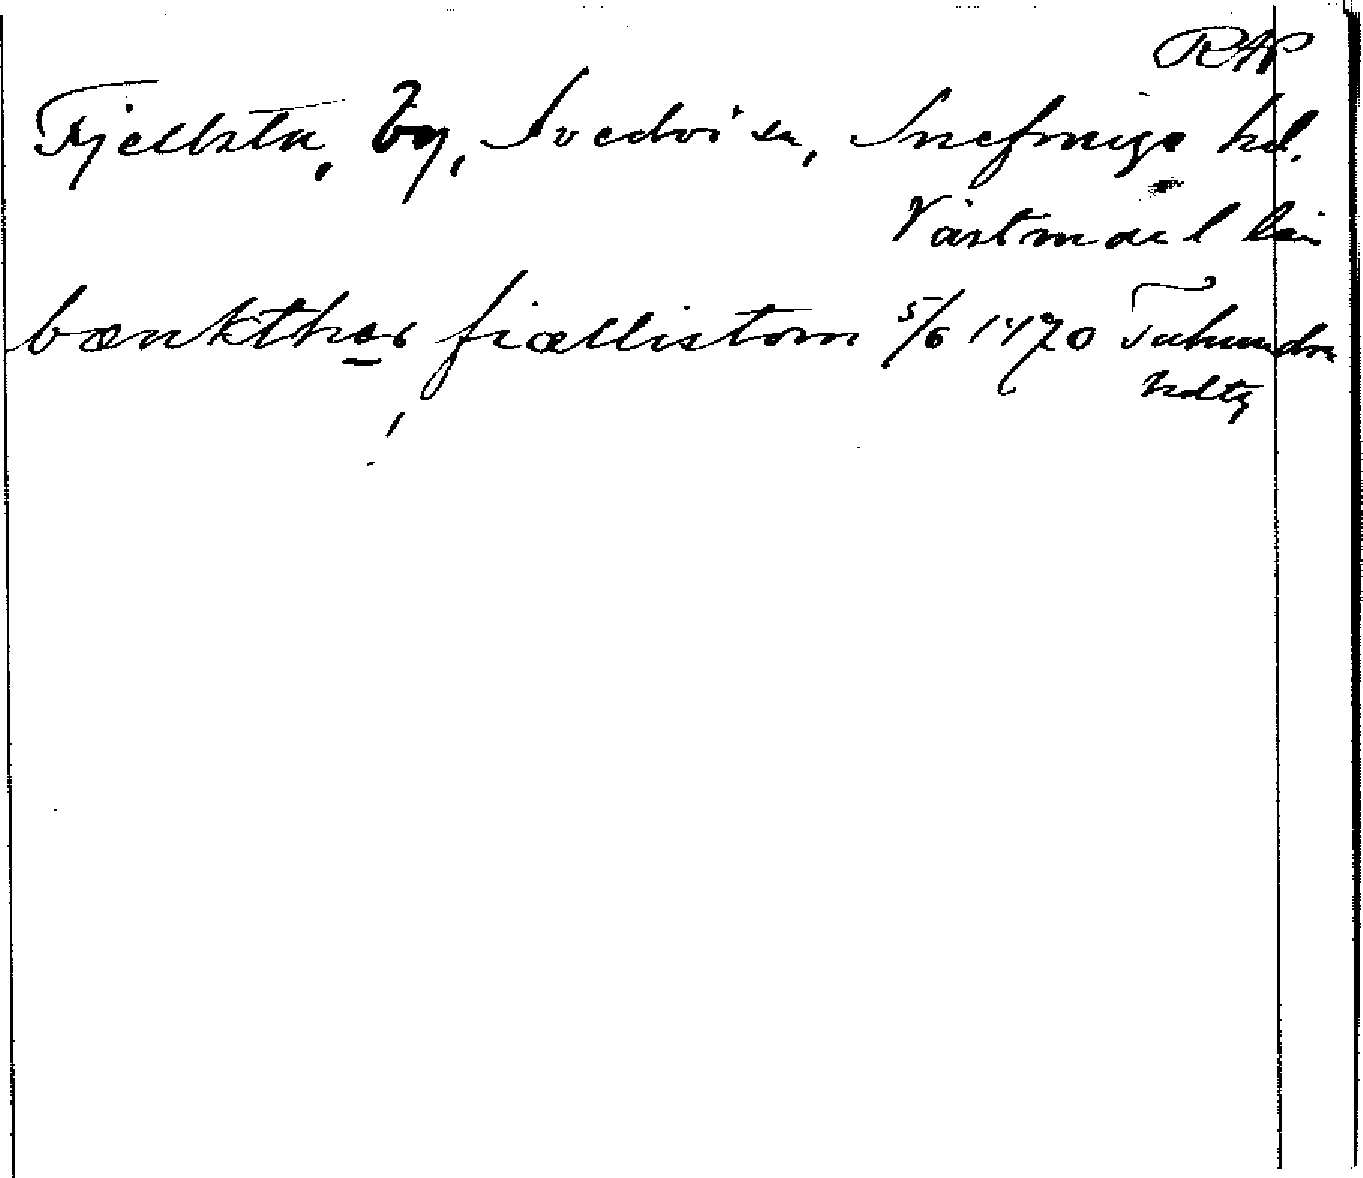 RAP
Fjellsta, by, Svedvi sn, Snefringe hd.
Västmanl län
bænkther fiællistom 5/6 1470 Tuhundra
hdtg